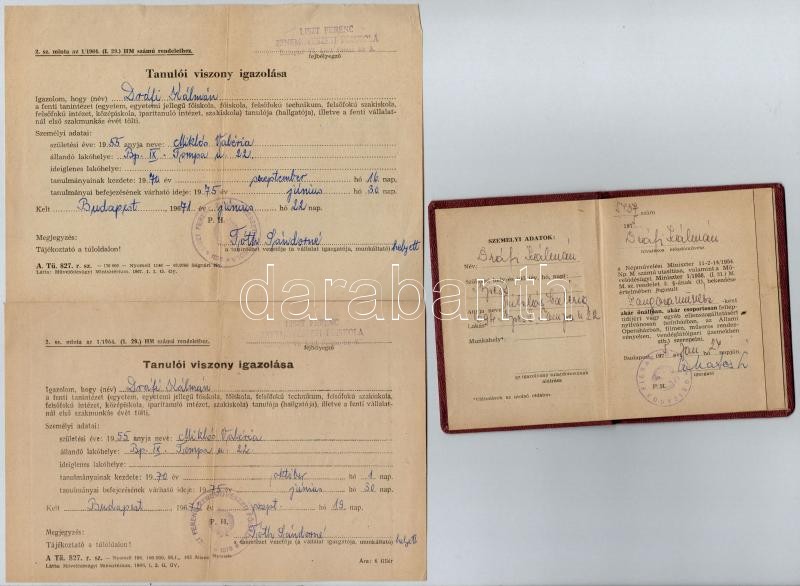 LISZT FERENC
ZENEMŰVÉSZETI FŐISKOLA
2. sz. minta az 1/1966. (I. 29.) HM számú rendelethez.
fejbélyegző
Tanulói viszony igazolása
Igazolom, hogy (név) Dráfi Kálmán
a fenti tanintézet (egyetem, egyetemi jellegű főiskola, főiskola, felsőfokú technikum, felsőfokú szakiskola,
felsőfokú intézet, középiskola, iparitanuló intézet, szakiskola) tanulója (hallgatója), illetve a fenti vállalat-
nál első szakmunkás évét tölti.
Személyi adatai:
születési éve: 1955 anyja neve: Miklós Valéria
állandó lakóhelye: Bp. IX. Tompa u. 22.
ideiglenes lakóhelye:
tanulmányainak kezdete: 1970 év szeptember hó 16 nap.
tanulmányai befejezésének várható ideje: 1975 év június hó 30 nap.
Kelt Budapest, 1971 év június hó 22 nap.
P. H.
Megjegyzés:
Tájékoztató a túloldalon!
Tóth Sándorné
a tanintézet vezetője (a vállalat igazgatója, munkáltató) helyett
A Tü. 827. r. sz.
Látta: Művelődésügyi Minisztérium, 1967. I. 2. G. GY.
darabanth
LISZT FERENC
2. sz. minta az 1/1966. (I. 29.) HM számú rendelethez.
fejbélyegző
Tanulói viszony igazolása
Igazolom, hogy (név) Dráfi Kálmán
a fenti tanintézet (egyetem, egyetemi jellegű főiskola, főiskola, felsőfokú technikum, felsőfokú szakiskola,
felsőfokú intézet, középiskola, iparitanuló intézet, szakiskola) tanulója (hallgatója), illetve a fenti vállalat-
nál első szakmunkás évét tölti.
Személyi adatai:
születési éve: 1955 anyja neve: Miklós Valéria
állandó lakóhelye: Bp. IX. Tompa u. 22
ideiglenes lakóhelye:
tanulmányainak kezdete: 1970 év október hó 1 nap.
tanulmányai befejezésének várható ideje: 1975 év június hó 30 nap.
Kelt Budapest, év szept. hó 19 nap.
P. H.
Megjegyzés:
Tájékoztató a túloldalon!
Tóth Sándorné
a tanintézet vezetője (a vállalat igazgatója, munkáltató) helyett
A Tü. 827. r. sz.
Ára: 6 fillér
SZEMÉLYI ADATOK:
Dráfi Kálmán
Név:
Születési helye, év, hó, nap:
Miklós Valéria
Anyja neve:
Lakás*
Munkahely*:
az igazolvány tulajdonosának
aláírása
*Változások az utolsó oldalon.
szám
Dráfi Kálmán
hivatásos előadóművész
a Népművelési Miniszter 11-2-14/1954.
Np. M. számú utasítása, valamint a Mű-
velődésügyi Miniszter
M. sz. rendelet 2. §-ának (1). bekezdése
értelmében jogosult
zongoraművész -ként
akár önállóan, akár csoportosan fellép-
tidíjért vagy egyéb ellenszolgáltatásért
nyilvánosan színházban, az Állami
Operaházban, filmen, műsoros rendez-
vényeken, vendéglátóipari üzemekben
stb.) szerepelni.
Budapest, 197
P. H.
igazgató